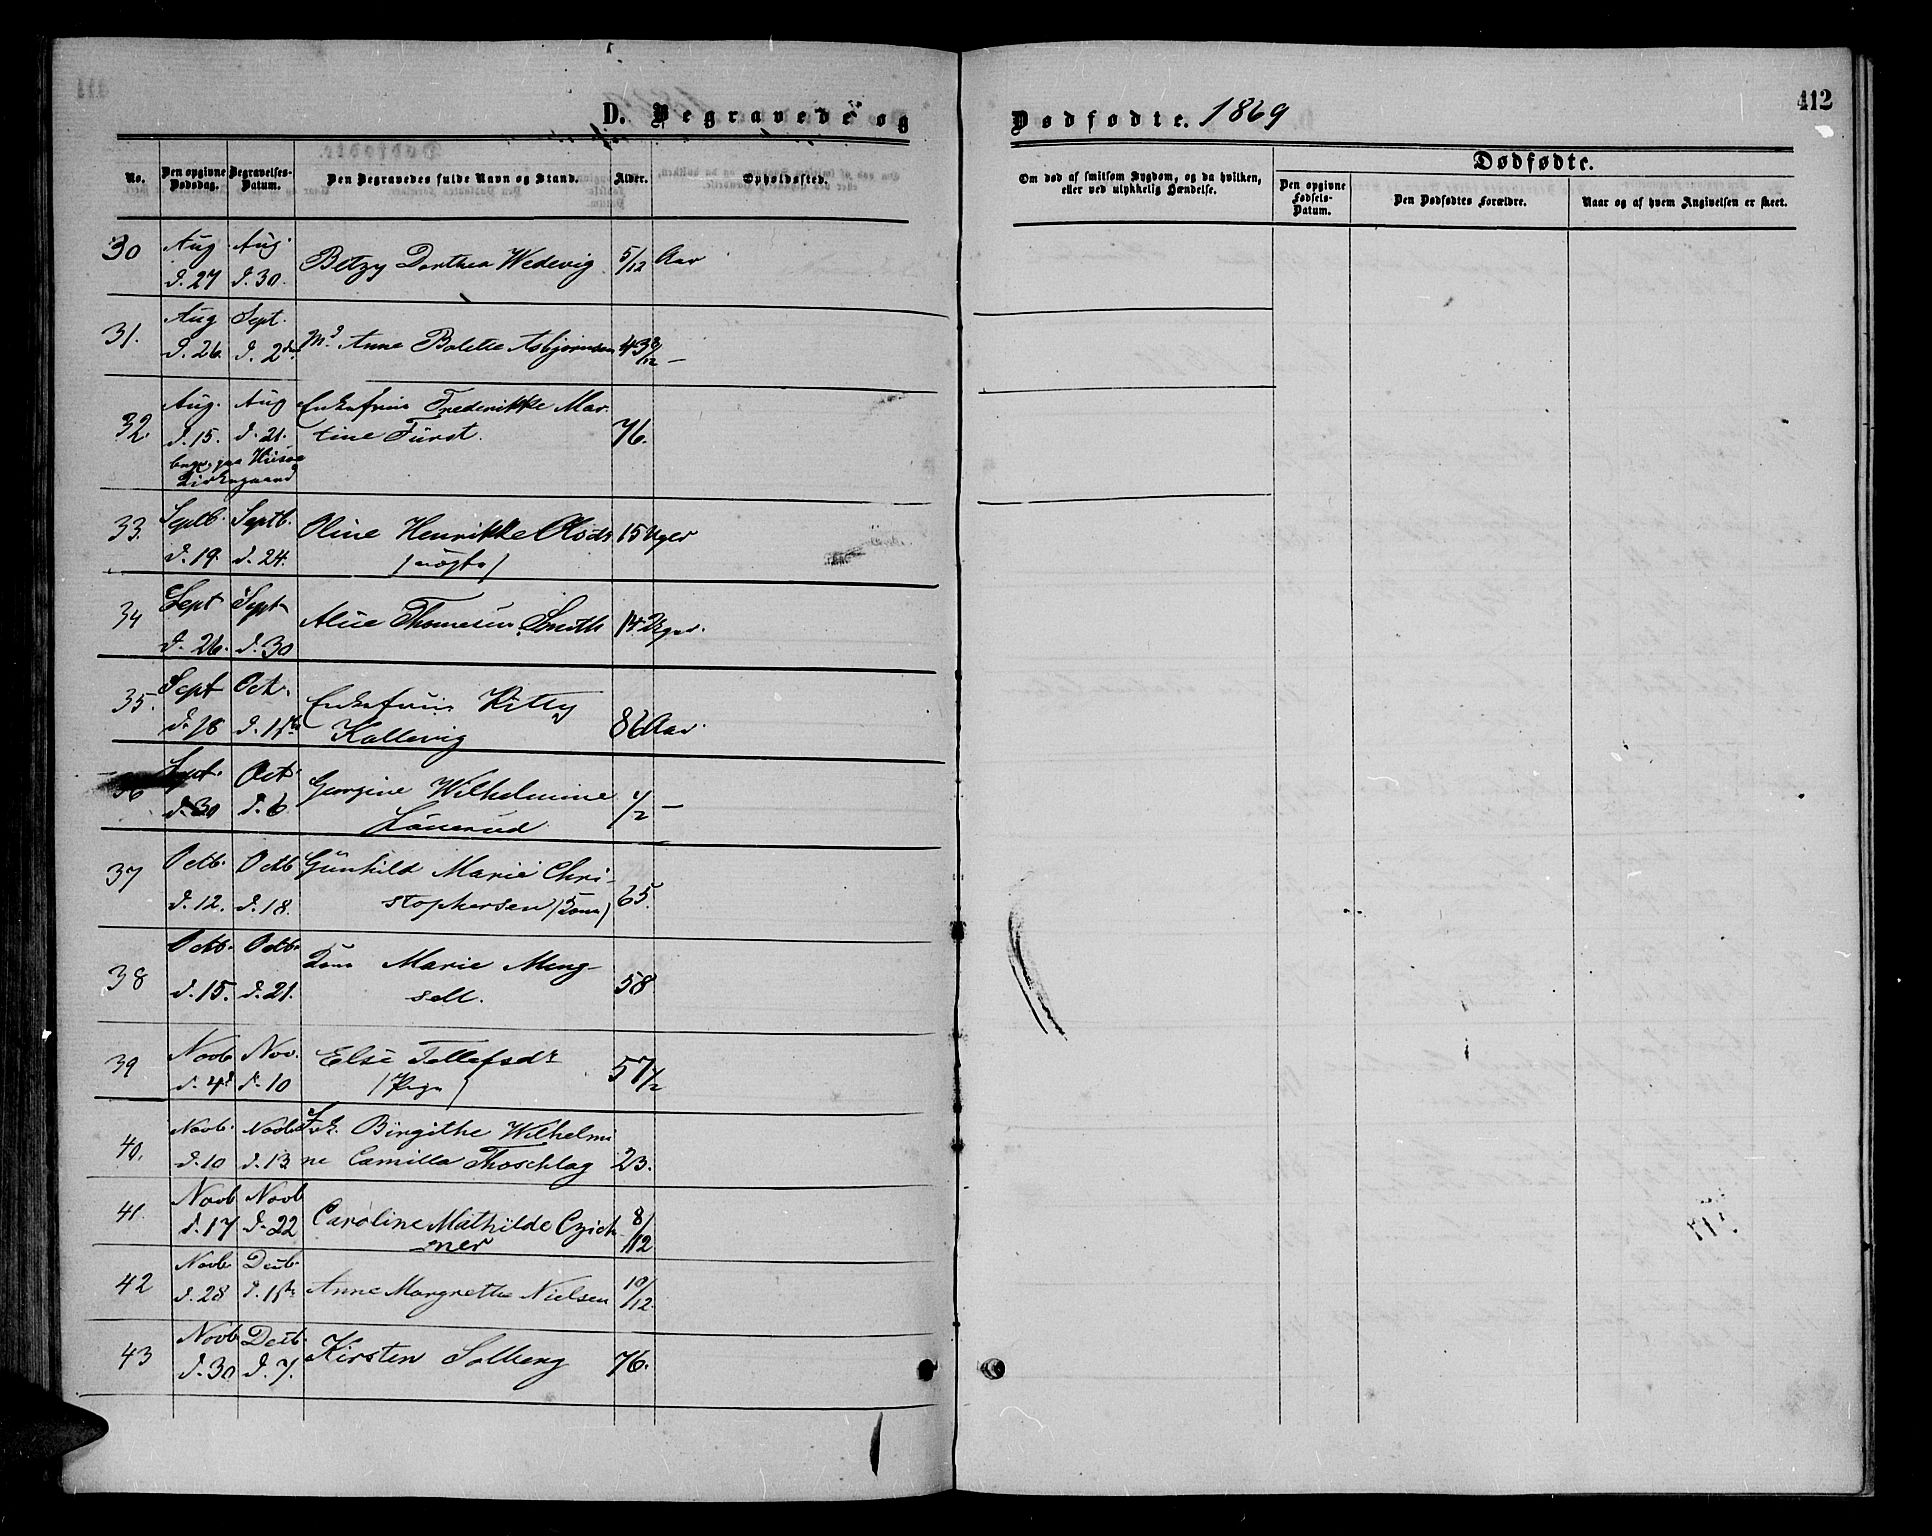 D. Begravede og Dødfødte. 1869
412
No.
Den opgivne Dødsdag.
Begravelses-Datum.
Den Begravedes fulde Navn og Stand.
Alder.
Opholdssted.
Om død af smitsom Sygdom, og da hvilken, eller ved ulykkelig Hændelse.
Dødfødte.
Den opgivne Fødsels-Datum.
Den Dødfødtes Forældre.
Naar og af hvem Angivelsen er skeet.
30 Aug Aug.
d. 27 d. 30. Betzy Dorthea Wedevig 5/12 Aar
31. Aug Sept.
d. 26. d. 2den Md Anne Bolette Asbjørnsen 43 8/12 —
32. Aug. Aug Enkefrue Frederikke Mar-
d. 15. d. 21. tine Fürst. 76.
begr. paa Hisøe
Kirkegaard
33. Septb. Septb. Oline Henrikke Olsdr 15 Uger
d. 19. d. 24. (uægte)
34 Sept Sept
d. 26. d. 30 Alice Thomesen Smith 14 Uger.
35. Sept Oct. Enkefrue Kitty
d. 28 d. 1ste Kallevig 86 Aar.
36 Sept. Oct. Georgine Wilhelmine
d. 30 d. 6. 1/2 —
37 Octb. Octb Gunhild Marie Chri-
d. 12. d. 18. stophersen (Kone) 65.
38 Octb. Octb. Kone Marie Meng-
d. 15. d. 21. sell. 58
39 Novb Nov. Else Tellefsdr
d. 4de d. 10 (Pige) 57 1/2
40. Novb. Novb Frk. Birgithe Wilhelmi
d. 10 d. 13 ne Camilla Thoschlag 23.
41. Novb Novb
d. 17 d. 22 Caroline Mathilde Czich
ner 8/12
42 Novb Decb.
d. 28 d. 1ste Anne Margrethe Nielsen 10/12
43 Novb Decb.
d. 30 d. 7. Kirsten Solberg 76.